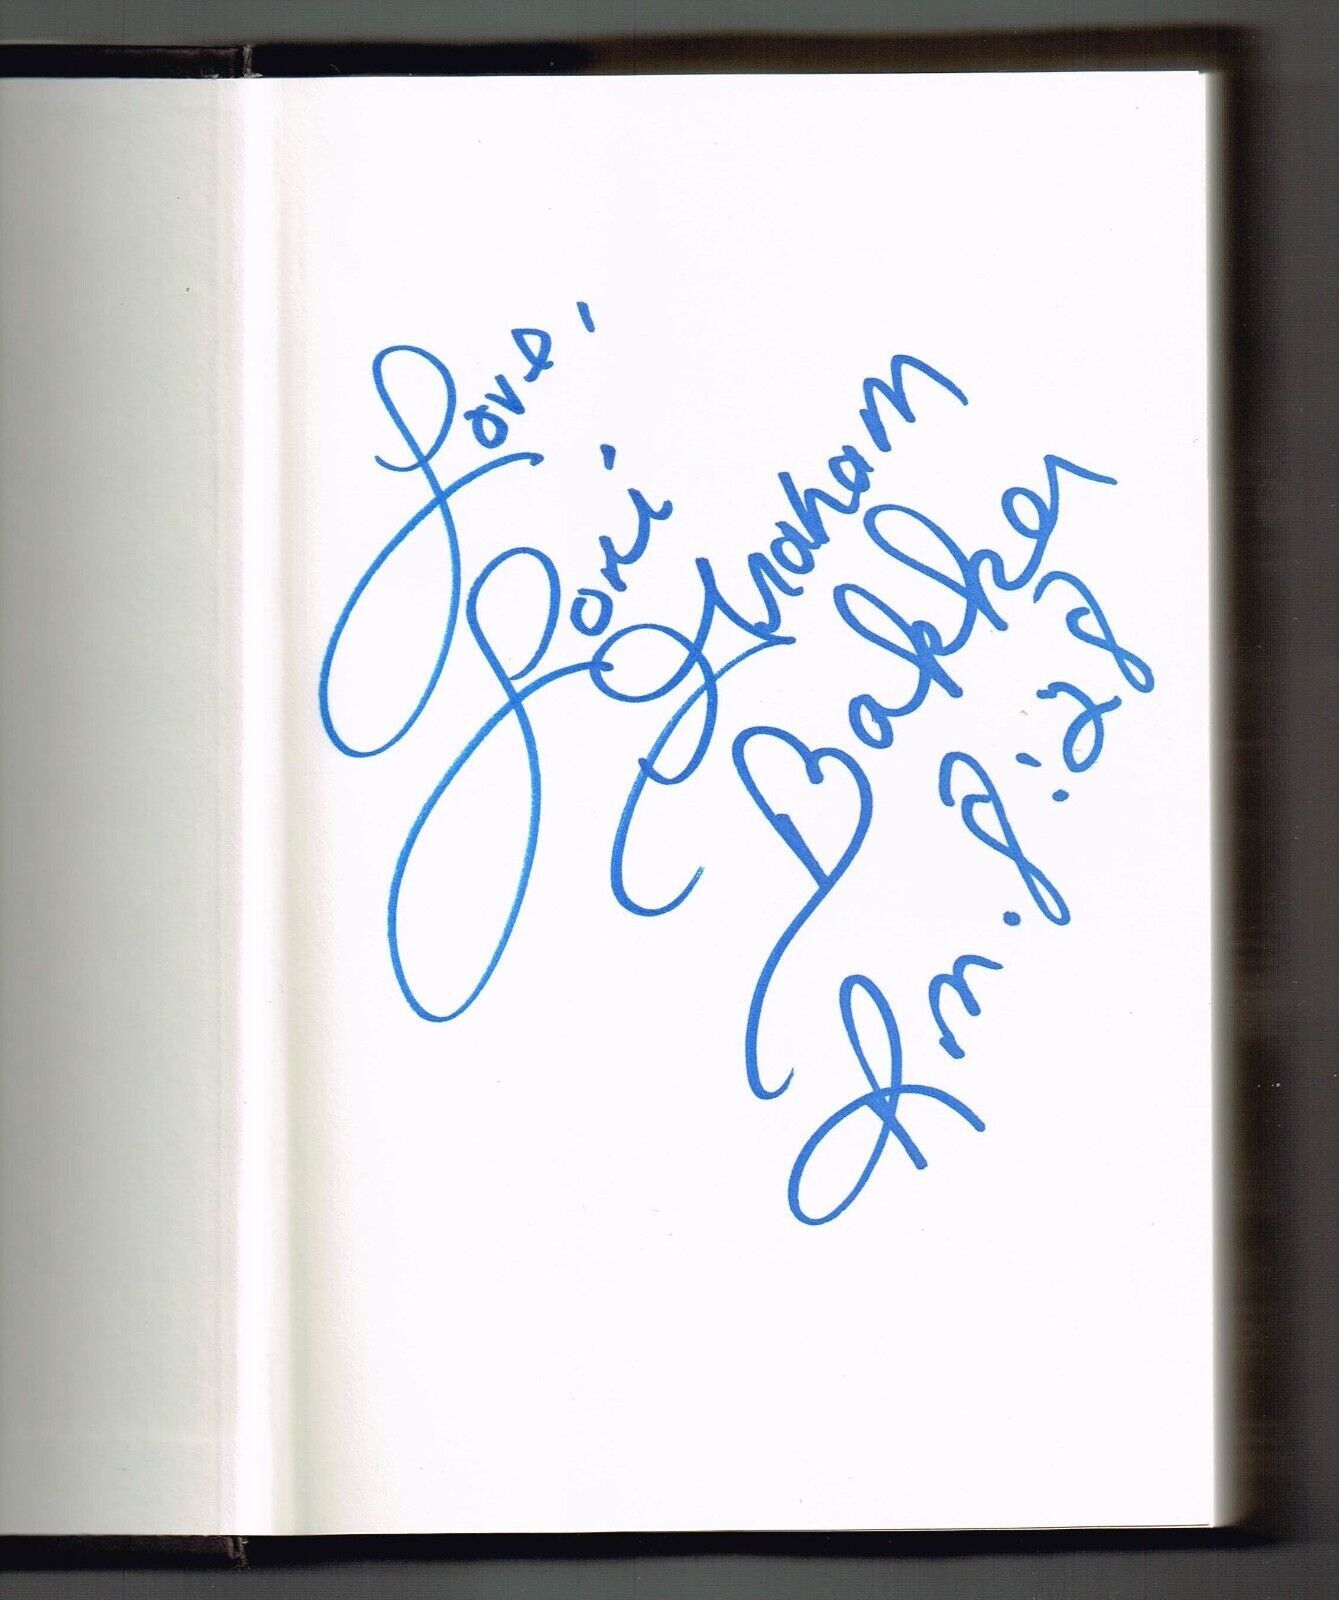 Love,
Lori
Graham
Bakker
Rm. 8:28